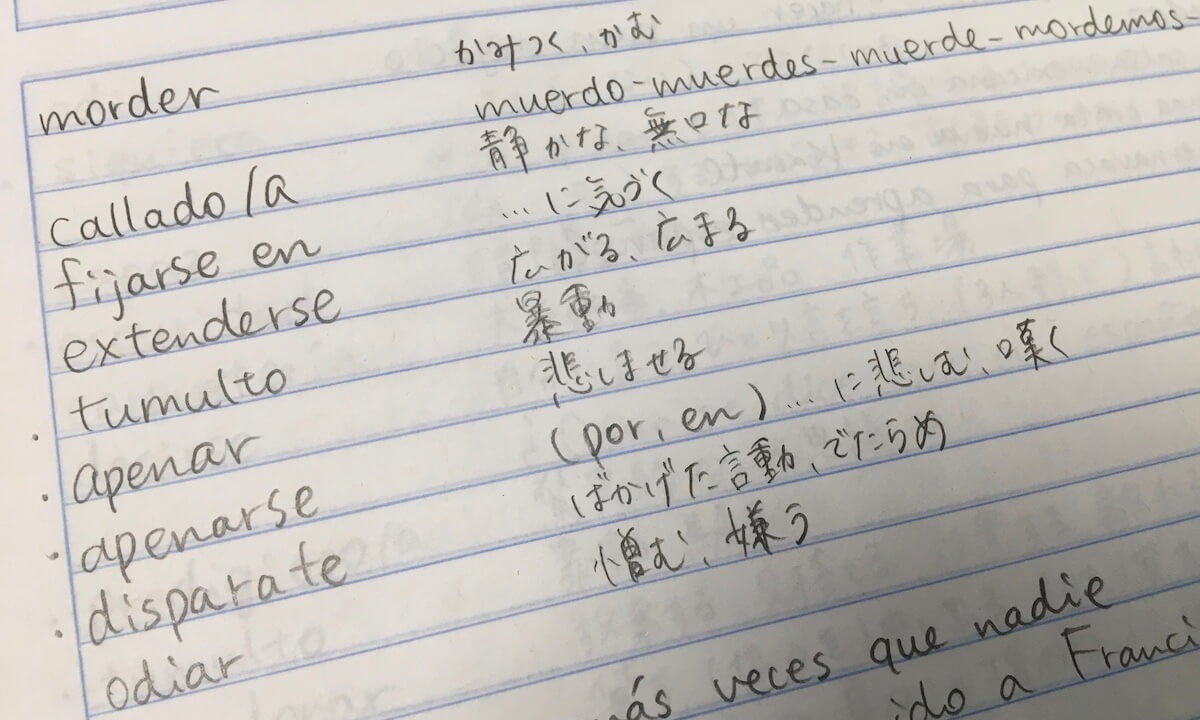 morder かみつく、かむ
muerdo-muerdes-muerde-mordemos-
callado/a 静かな、無口な
fijarse en …に気づく
extenderse 広がる、広まる
tumulto 暴動
apenar 悲しませる
apenarse (por, en)…に悲しむ、嘆く
disparate ばかげた言動、でたらめ
odiar 憎む、嫌う
ás veces que nadie
ido a Franci